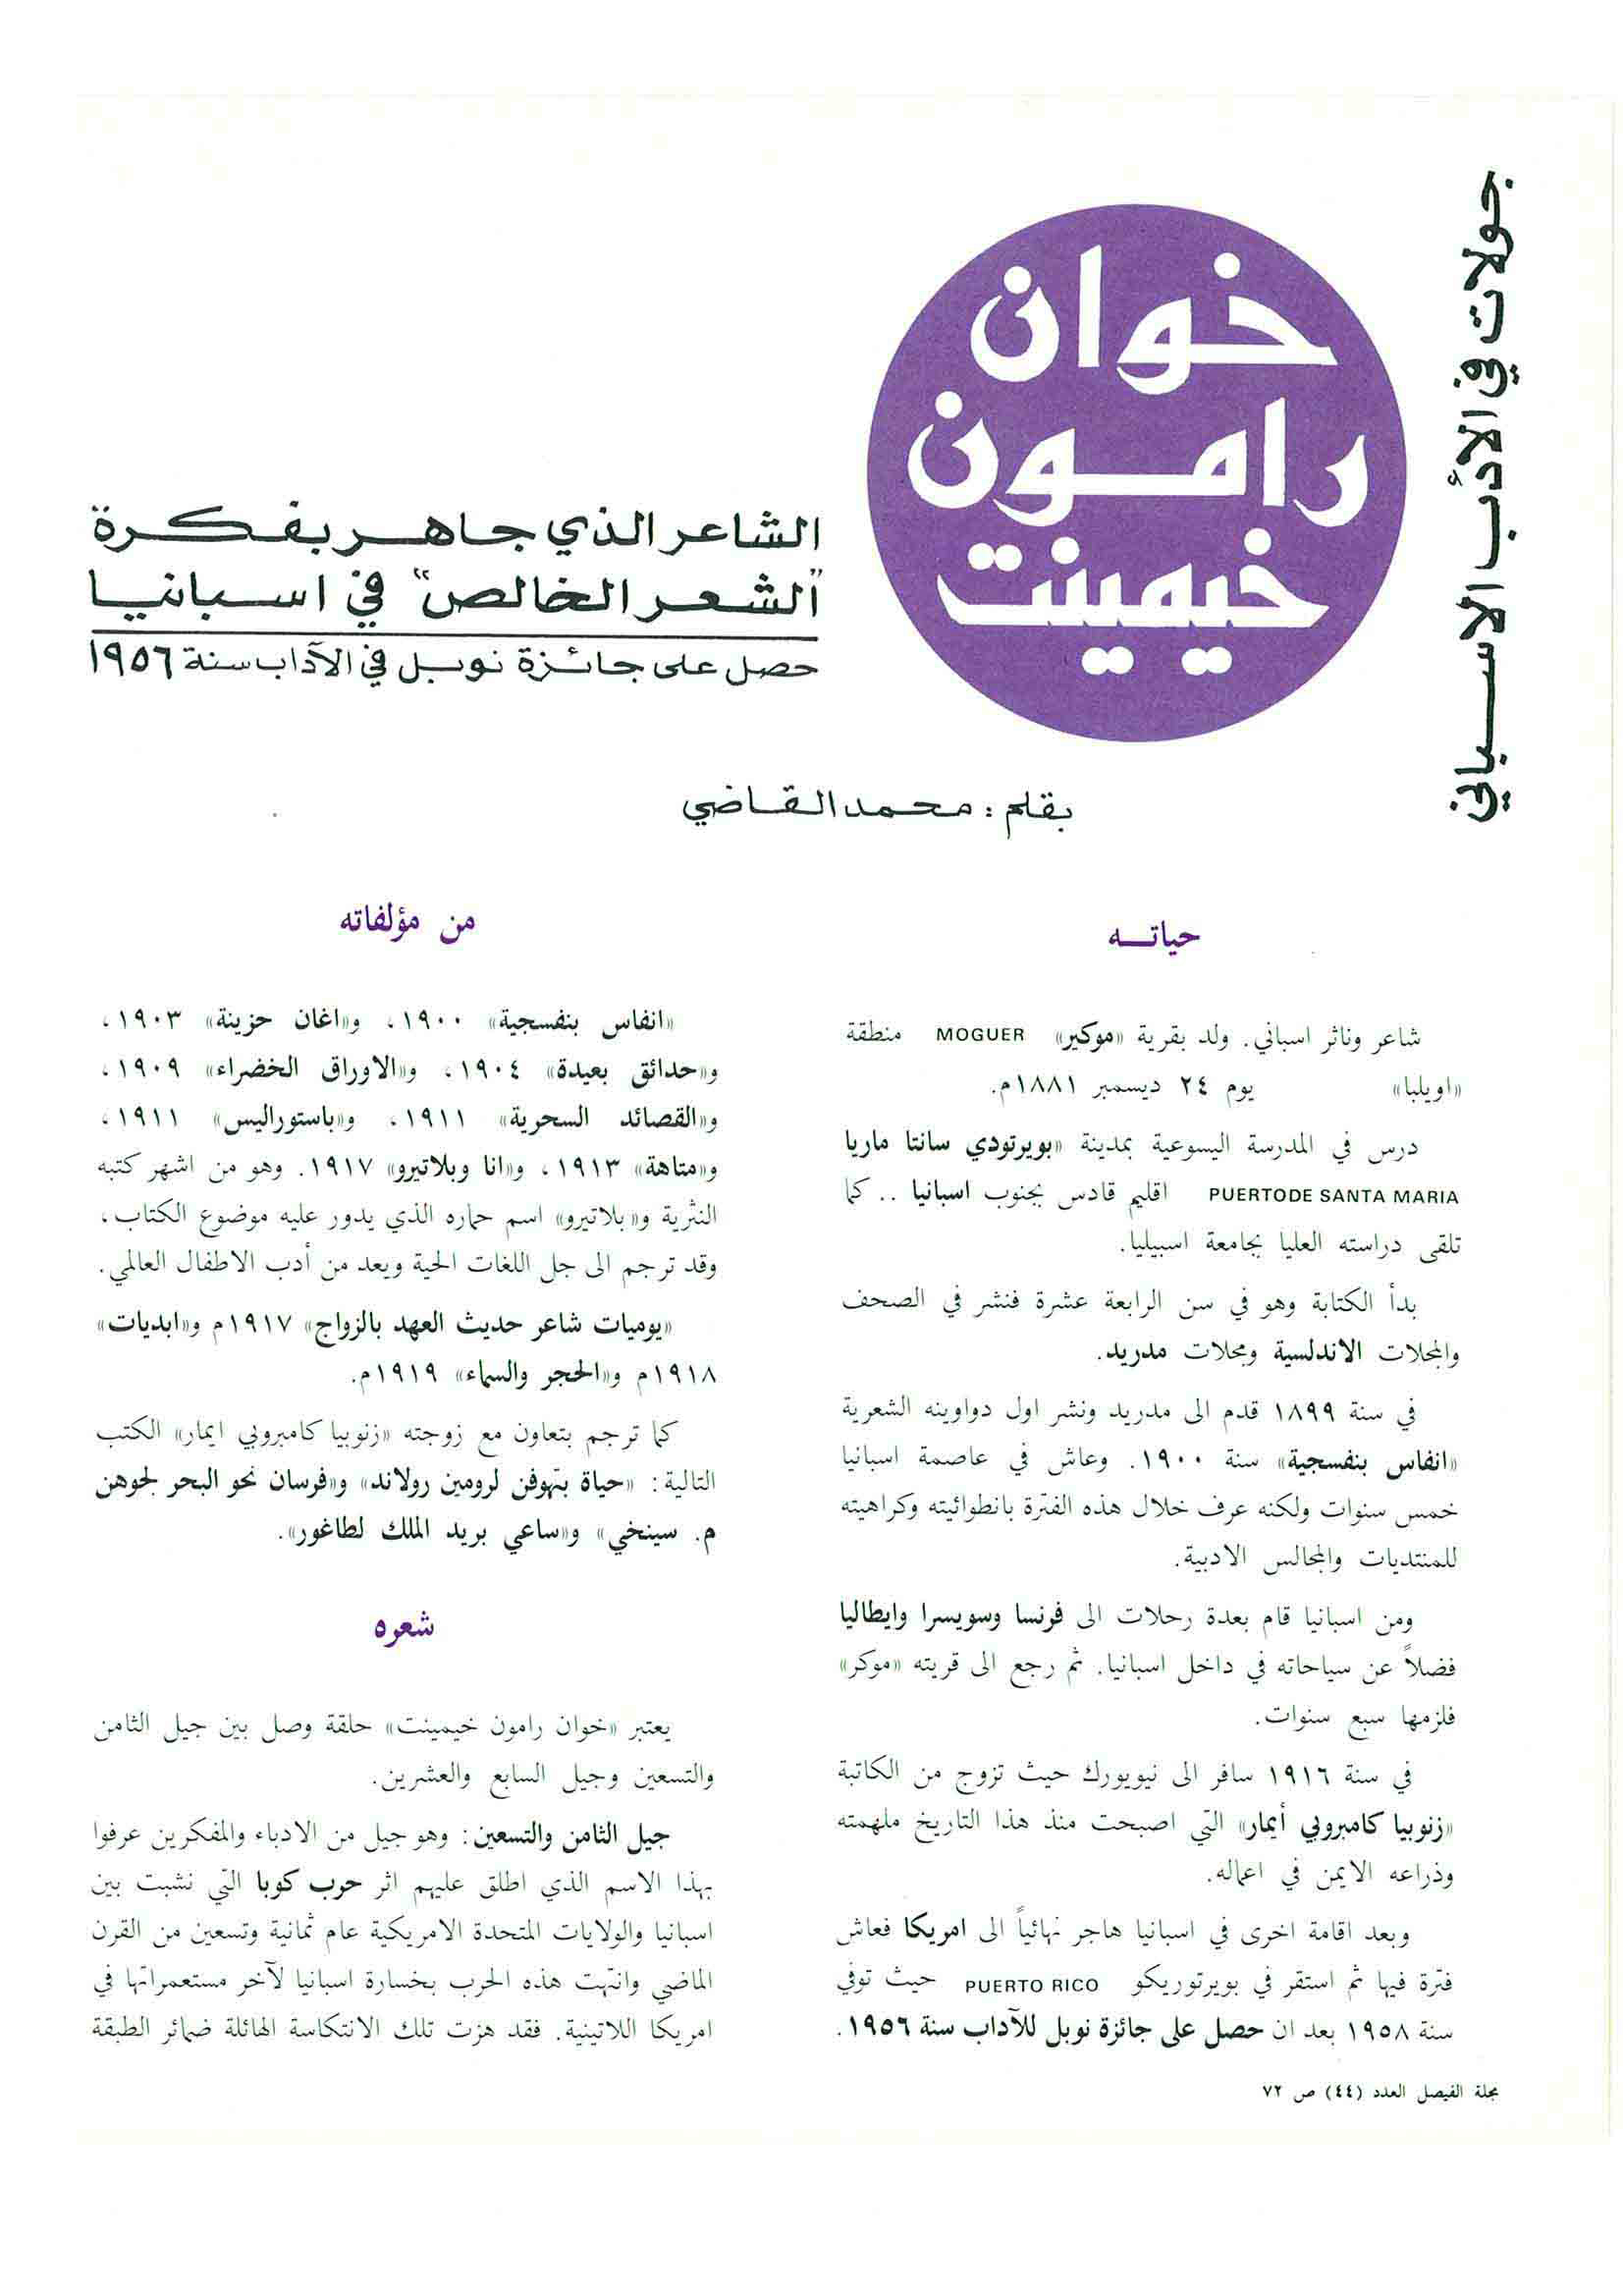 جولات في الأدب الاسباني
خوان
رامون
خيمينت
الشاعر الذي جاهر بفكرة
"الشعر الخالص" في اسبانيا
حصل على جائزة نوبل في الآداب سنة ١٩٥٦
بقلم : محمد القاضي
حياته
شاعر وناثر اسباني. ولد بقرية «موكير» MOGUER منطقة
«اويلبا» يوم ٢٤ ديسمبر ١٨٨١م.
درس في المدرسة اليسوعية بمدينة «بويرتودي سانتا ماريا
PUERTODE SANTA MARIA اقليم قادس بجنوب اسبانيا .. كما
تلقى دراسته العليا بجامعة اسبيليا.
بدأ الكتابة وهو في سن الرابعة عشرة فنشر في الصحف
والمجلات الاندلسية ومجلات مدريد.
في سنة ١٨٩٩ قدم الى مدريد ونشر اول دواوينه الشعرية
«انفاس بنفسجية» سنة ١٩٠٠. وعاش في عاصمة اسبانيا
خمس سنوات ولكنه عرف خلال هذه الفترة بانطوائيته وكراهيته
للمنتديات والمجالس الادبية.
ومن اسبانيا قام بعدة رحلات الى فرنسا وسويسرا وايطاليا
فضلاً عن سياحاته في داخل اسبانيا. ثم رجع الى قريته «موكر»
فلزمها سبع سنوات.
في سنة ١٩١٦ سافر الى نيويورك حيث تزوج من الكاتبة
«زنوبيا كامبروبي أيمار» التي اصبحت منذ هذا التاريخ ملهمته
وذراعه الايمن في اعماله.
وبعد اقامة اخرى في اسبانيا هاجر نهائياً الى امريكا فعاش
فترة فيها ثم استقر في بويرتوريكو PUERTO RICO حيث توفي
سنة ١٩٥٨ بعد ان حصل على جائزة نوبل للآداب سنة ١٩٥٦.
من مؤلفاته
«انفاس بنفسجية» ١٩٠٠، و«اغان حزينة» ١٩٠٣،
و«حدائق بعيدة» ١٩٠٤، و«الاوراق الخضراء» ١٩٠٩،
و«القصائد السحرية» ١٩١١، و«باستوراليس» ١٩١١،
و«متاهة» ١٩١٣، و«انا وبلاتيرو» ١٩١٧. وهو من اشهر كتبه
النثرية و«بلاتيرو» اسم حماره الذي يدور عليه موضوع الكتاب،
وقد ترجم الى جل اللغات الحية ويعد من أدب الاطفال العالمي.
«يوميات شاعر حديث العهد بالزواج» ١٩١٧م و«ابديات»
١٩١٨م و«الحجر والسماء» ١٩١٩م.
كما ترجم بتعاون مع زوجته «زنوبيا كامبروبي ايمار» الكتب
التالية: «حياة بتهوفن لرومين رولاند» و«فرسان نحو البحر لجوهن
م. سينخي» و«ساعي بريد الملك لطاغور».
شعره
يعتبر «خوان رامون خيمينت» حلقة وصل بين جيل الثامن
والتسعين وجيل السابع والعشرين.
جيل الثامن والتسعين: وهو جيل من الادباء والمفكرين عرفوا
بهذا الاسم الذي اطلق عليهم اثر حرب كوبا التي نشبت بين
اسبانيا والولايات المتحدة الامريكية عام ثمانية وتسعين من القرن
الماضي وانتهت هذه الحرب بخسارة اسبانيا لآخر مستعمراتها في
امريكا اللاتينية. فقد هزت تلك الانتكاسة الهائلة ضمائر الطبقة
مجلة الفيصل العدد (٤٤) ص ٧٢